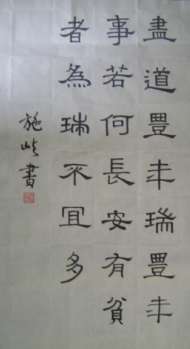 盡道豊年瑞豊年
事若何長安有貧
者為瑞不宜多
施書